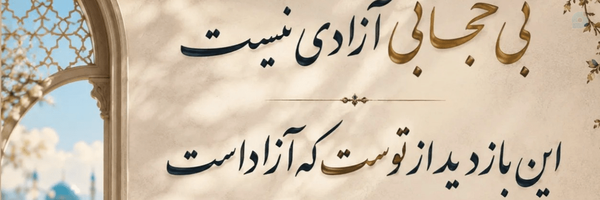 بی حجابی آزادی نیست
این بازدید از توست که آزاد است